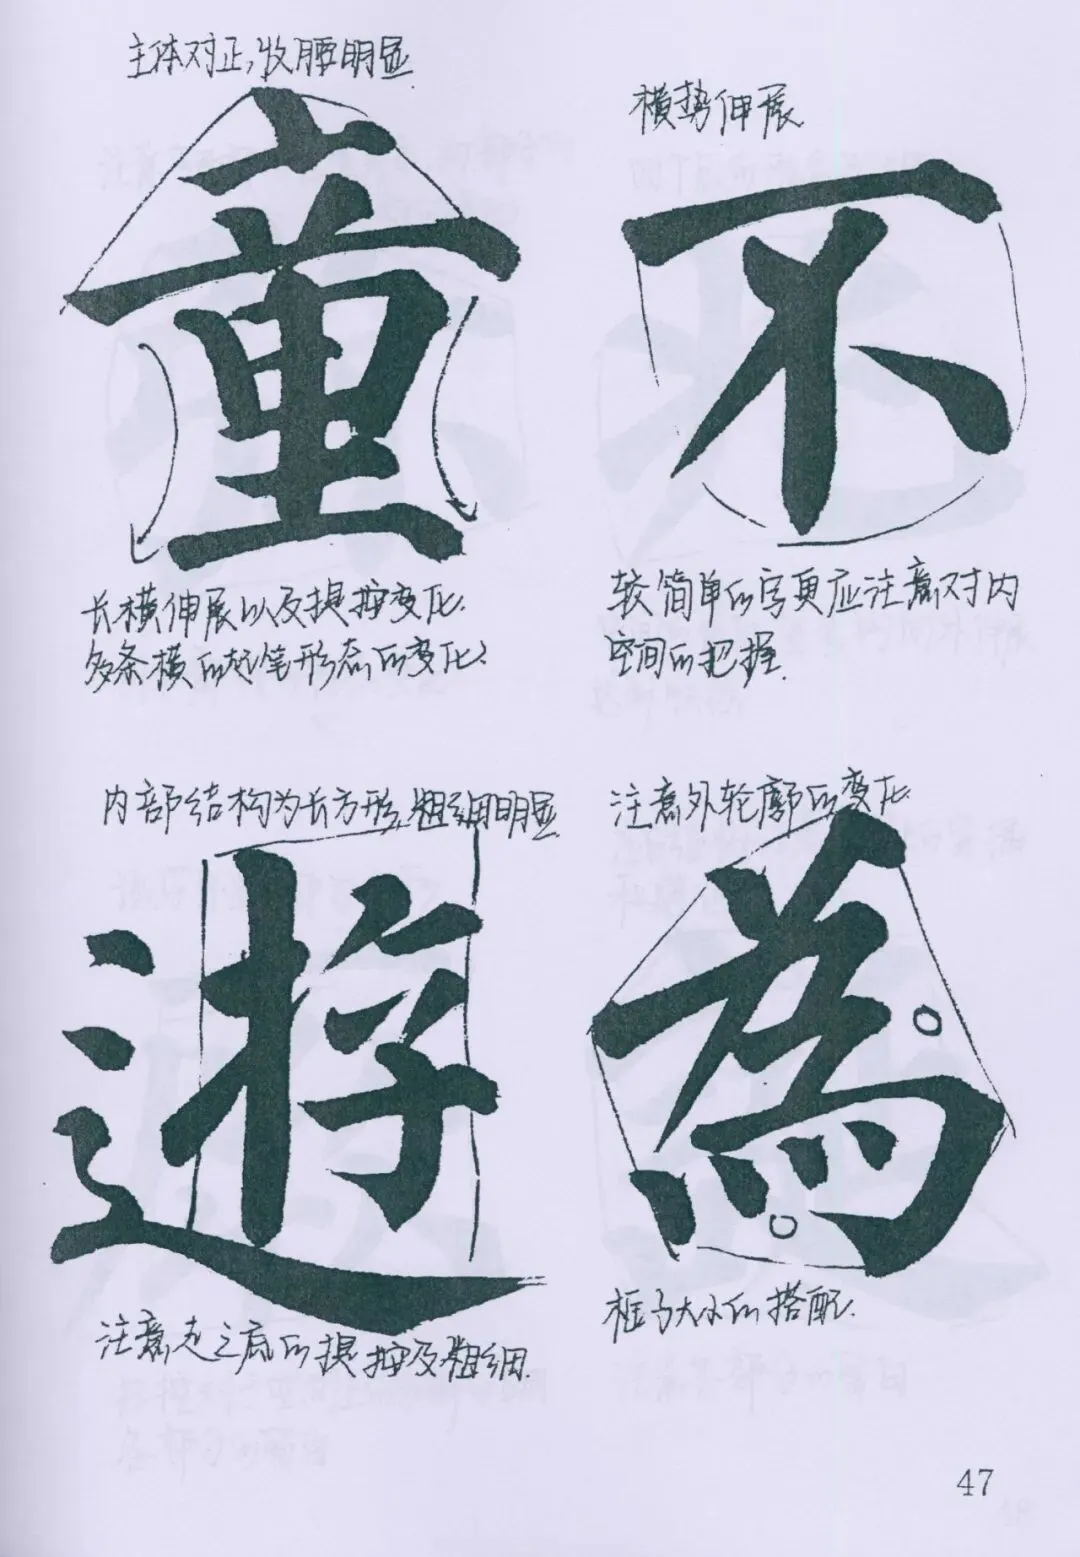 主体对正,收腰明显
童
长横伸展以及提按变化.
多条横的起笔形态的变化.
横势伸展
不
较简单的字更应注意对内
空间的把握.
内部结构为长方形,粗细明显
遊
注意走之底的提按及粗细.
注意外轮廓的变化
為
框子大小的搭配.
47